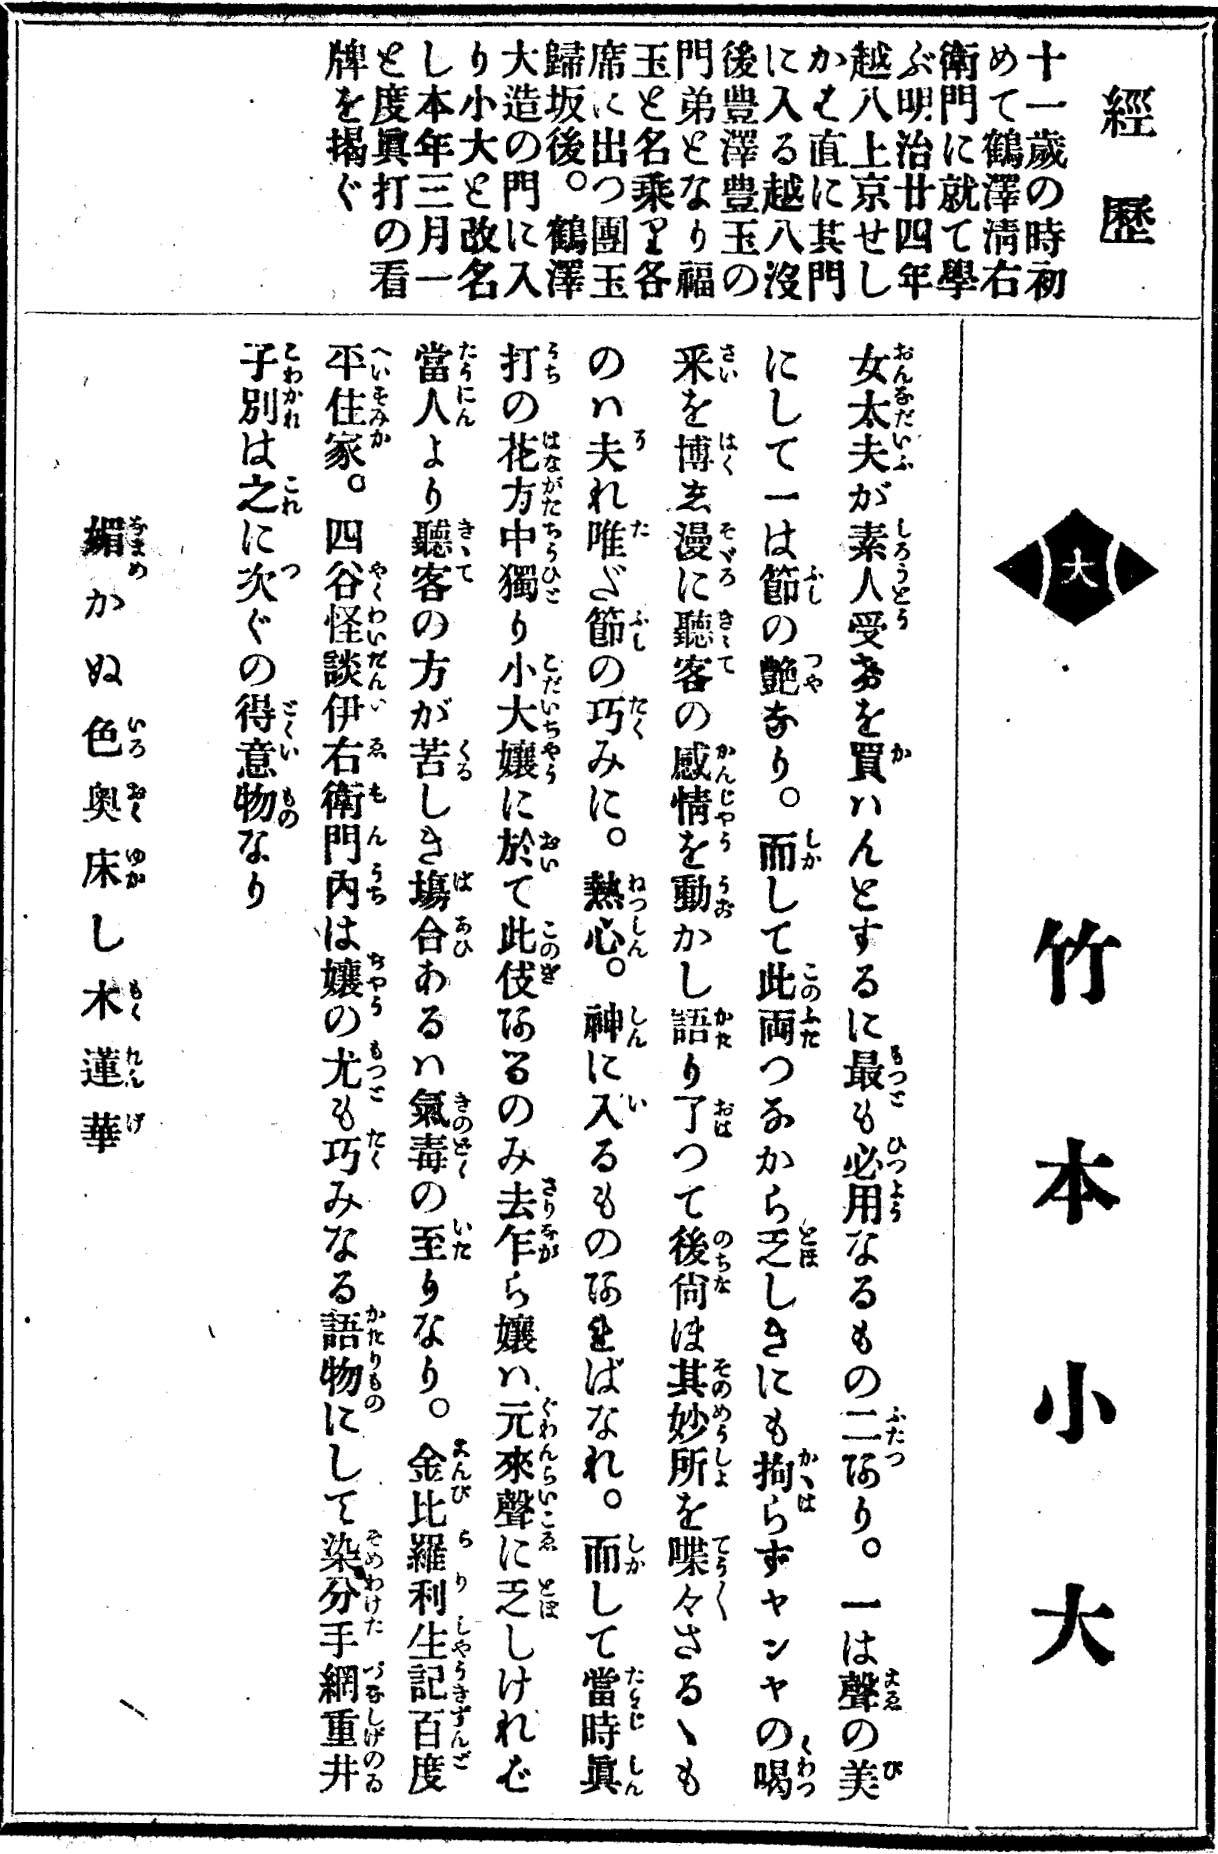 經歷
十一歲の時初
めて鶴澤淸右
衛門に就て學
ぶ明治廿四年
越八上京せし
かば直に其門
に入る越八沒
後豊澤豊玉の
門弟となり福
玉と名乘り各
席に出つ團玉
歸坂後。鶴澤
大造の門に入
り小大と改名
し本年三月一
と度眞打の看
牌を揭ぐ
大
竹本小大
女太夫が素人受けを買ハんとするに最も必用なるもの二あり。一は聲の美
にして一は節の艶なり。而して此両つながら乏しきにも拘らずヤンヤの喝
釆を博ゑ漫に聽客の感情を動かし語り了つて後尙ほ其妙所を喋々さるゝも
のハ夫れ唯だ節の巧みに。熱心。神に入るものあればなれ。而して當時眞
打の花方中獨り小大孃に於て此伎あるのみ去乍ら孃ハ元來聲に乏しければ
當人より聽客の方が苦しき塲合あるハ氣毒の至りなり。金比羅利生記百度
平住家。四谷怪談伊右衛門內は孃の尤も巧みなる語物にして染分手綱重井
子別は之に次ぐの得意物なり
媚かぬ色奥床し木蓮華